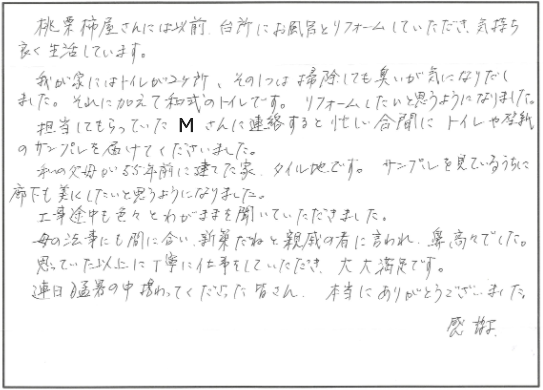 桃栗柿屋さんには以前、台所にお風呂とリフォームしていただき、気持ち
良く生活しています。
我が家にはトイレが2ヶ所、その1つは掃除しても臭いが気になりだし
ました。それに加えて和式のトイレです。リフォームしたいと思うようになりました。
担当してもらっていた M さんに連絡すると忙しい合間にトイレや壁紙
のサンプルを届けてくださいました。
私の父母が55年前に建てた家、タイル地です。サンプルを見ているうちに
廊下も美しくしたいと思うようになりました。
工事途中も色々とわがままを聞いていただきました。
母の法事にも間に合い、新築だねと親戚の者に言われ、鼻高々でした。
思っていた以上に丁寧に仕事をしていただき、大大満足です。
連日猛暑の中携わってくださった皆さん、本当にありがとうございました。
感謝